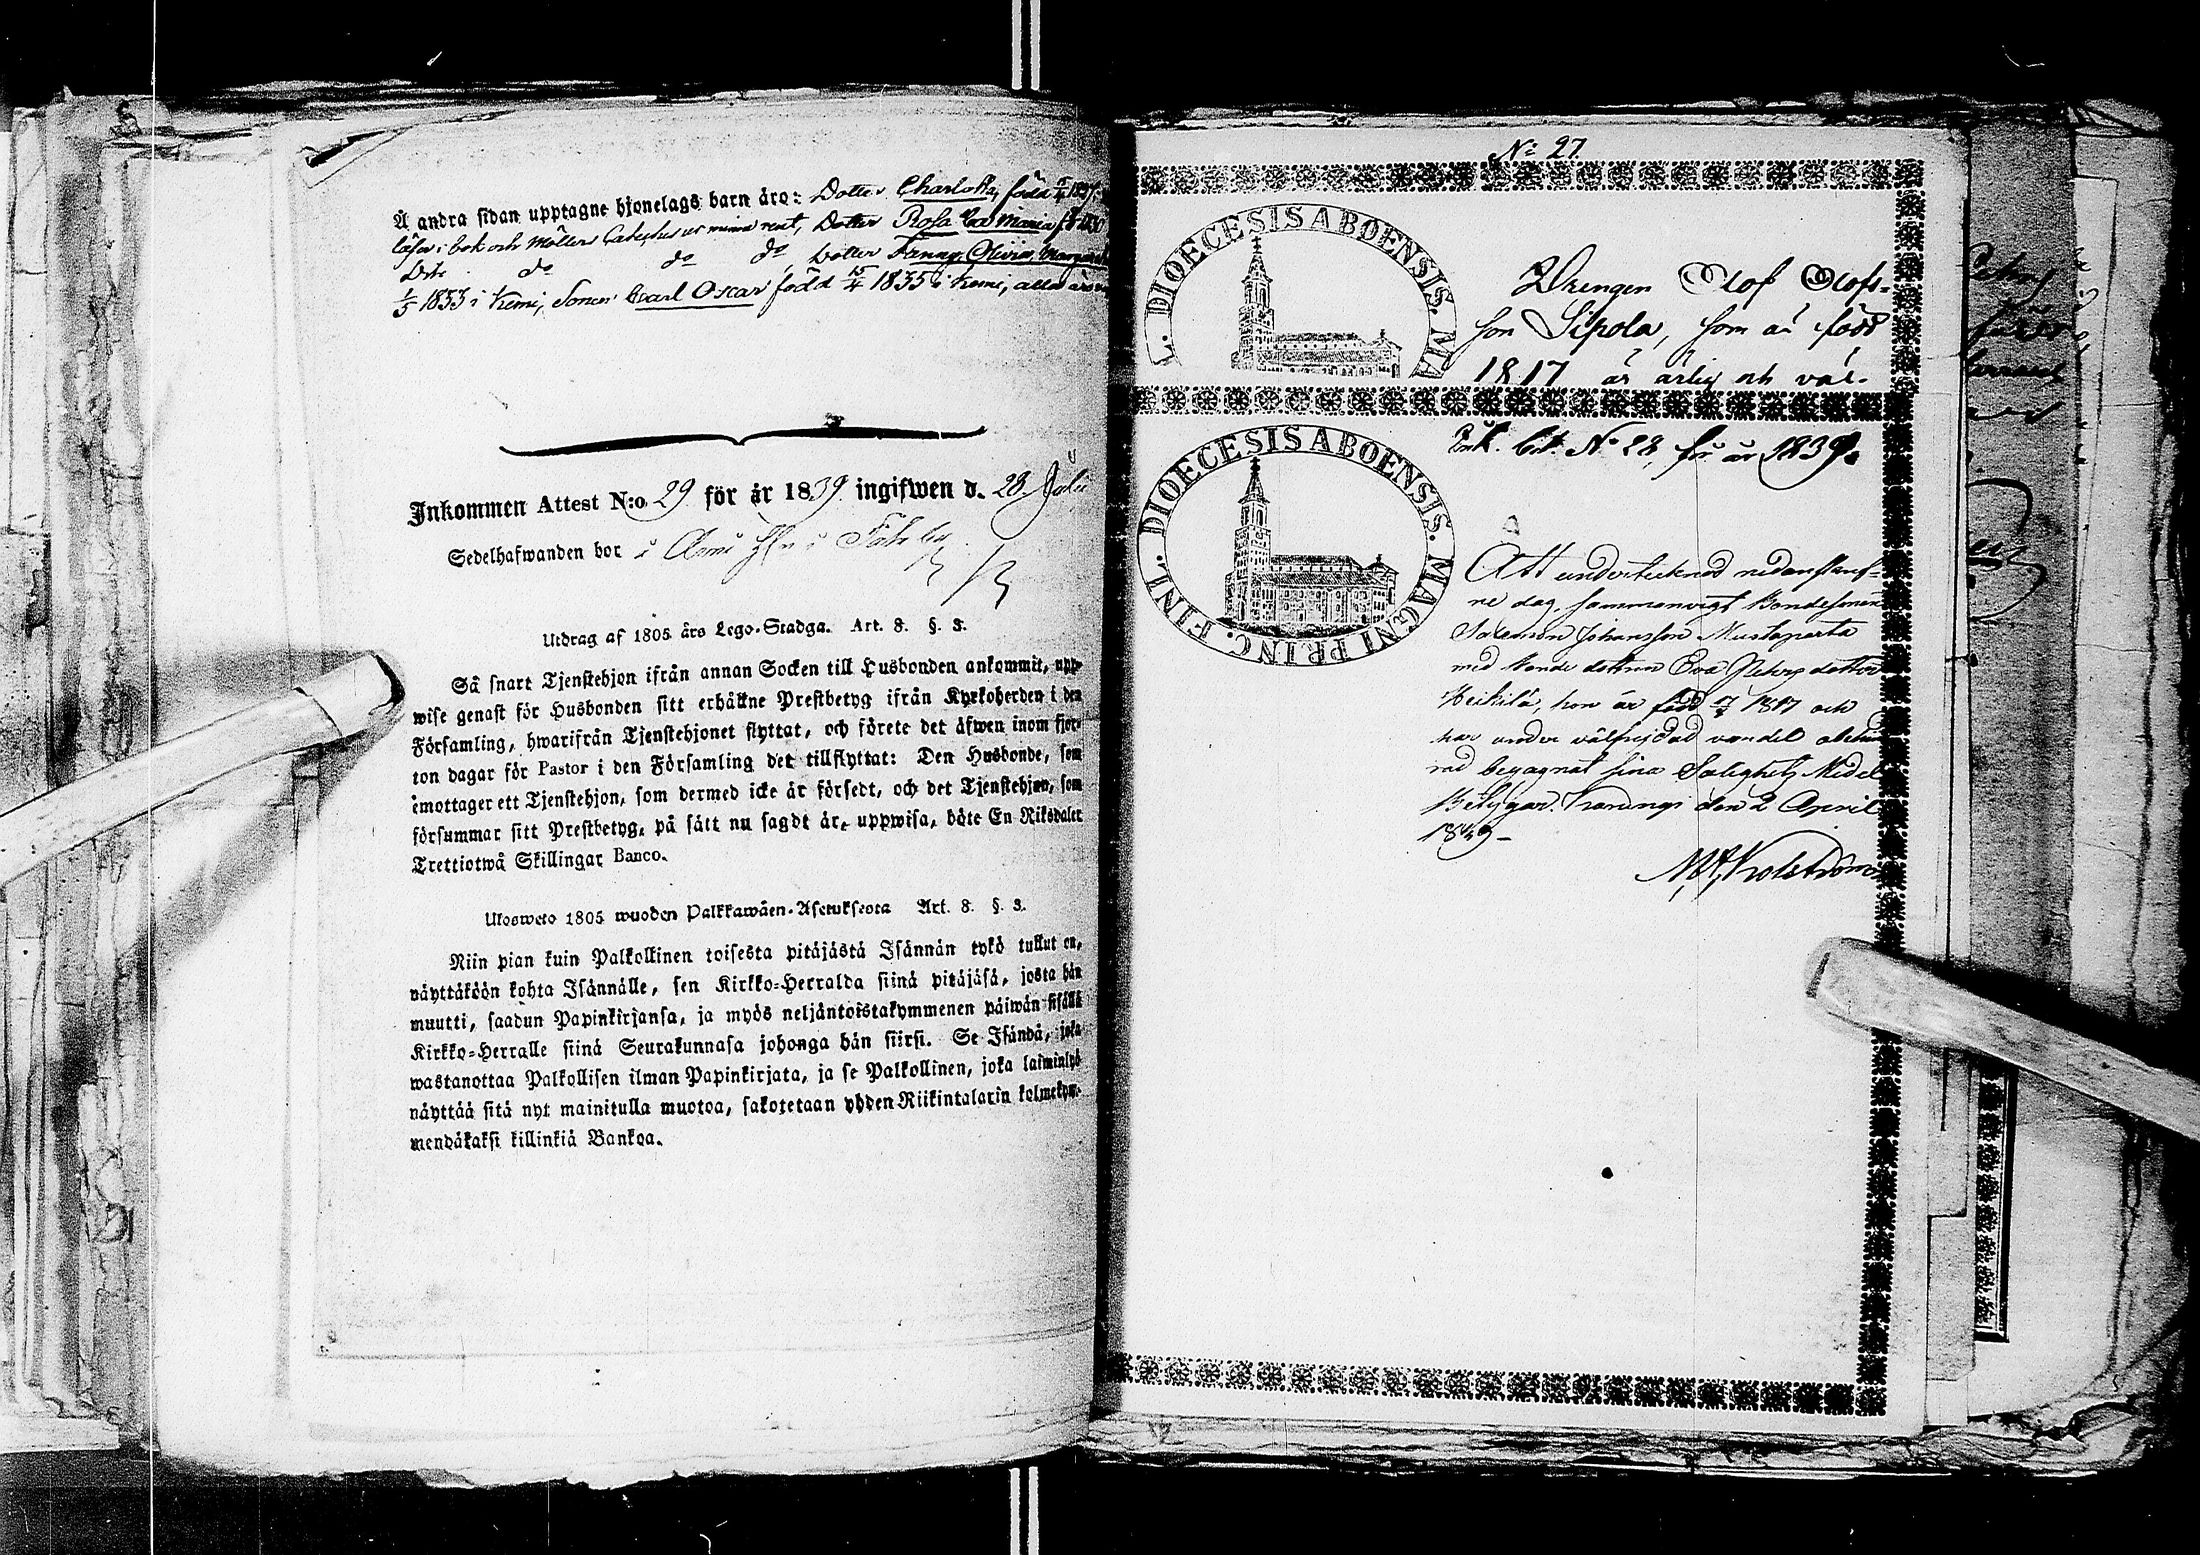 Å andra sidan upptagne hjonelags barn äro: Dotter Charlotta, född
läser i bok och Möllers Dotter Rosa Eva Maria
do do do Dotter Fanny Olivia
1/5 1833 i Kemi, Sonen Carl Oscar född 15/4 1835 i Kemi, alla
Inkommen Attest N:o 29 för år 1839 ingifwen d. 28 Julii
Sedelhafwanden bor i
Utdrag af 1805 års Lego-Stadga. Art. 8. §. 3.
Så snart Tjenstehjon ifrån annan Socken till Husbonden ankommit, upp-
wise genast för Husbonden sitt erhållne Prestbetyg ifrån Kyrkoherden i den
Församling, hwarifrån Tjenstehjonet flyttat, och förete det äfwen inom fjor-
ton dagar för Pastor i den Församling det tillflyttat: Den Husbonde, som
emottager ett Tjenstehjon, som dermed icke är försedt, och det Tjenstehjon, som
försummar sitt Prestbetyg, på sätt nu sagdt är, uppwisa, böte En Riksdaler
Trettiotwå Skillingar Banco.
Ulosweto 1805 wuoden Palkkawäen-Asetuksesta Art. 8. §. 3.
Niin pian kuin Palkollinen toisesta pitäjästä Isännän tykö tullut on,
näyttäköön kohta Isännälle, sen Kirkko-Herralda siinä pitäjäsä, josta hän
muutti, saadun Papinkirjansa, ja myös neljäntoistakymmenen päiwän sisällä
Kirkko-Herralle siinä Seurakunnasa johonga hän siirsi. Se Isändä, joka
wastanottaa Palkollisen ilman Papinkirjata, ja se Palkollinen, joka laiminlyö
näyttää sitä nyt mainitulla muotoa, sakotetaan yhden Riikintalarin kolmekym-
mendäkaksi killinkiä Bankoa.
N:o 27.
L. DIOECESIS ABOENSIS. MA
Drengen Olof Olofs-
son Sipola, som är född
1817 är ärlig och väl-
Ink. Bet. N:o 28, för år 1839.
DIOECESIS ABOENSIS. MAGNI PRINC. FINL.
Att undertecknad nedanskref-
ne dag, sammanvigt Bondesonen
Salomon Johansson Mustaparta
med Bonde dottren Eva Petersdotter
Heikilä, hon är född 1817 och
har under välfrejdad vandel
begagnat sina Salighets Medel
Betygar. Karungi den 2 April
1839 –